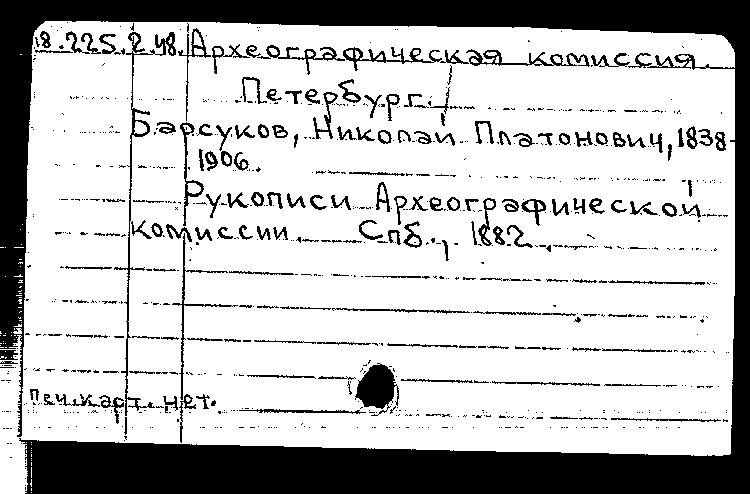 18.225.2.48. Археографическая комиссия.
Петербург.
Барсуков, Николай Платонович, 1838-
1906.
Рукописи Археографической
комиссии. Спб., 1882.
печ. карт. нет.